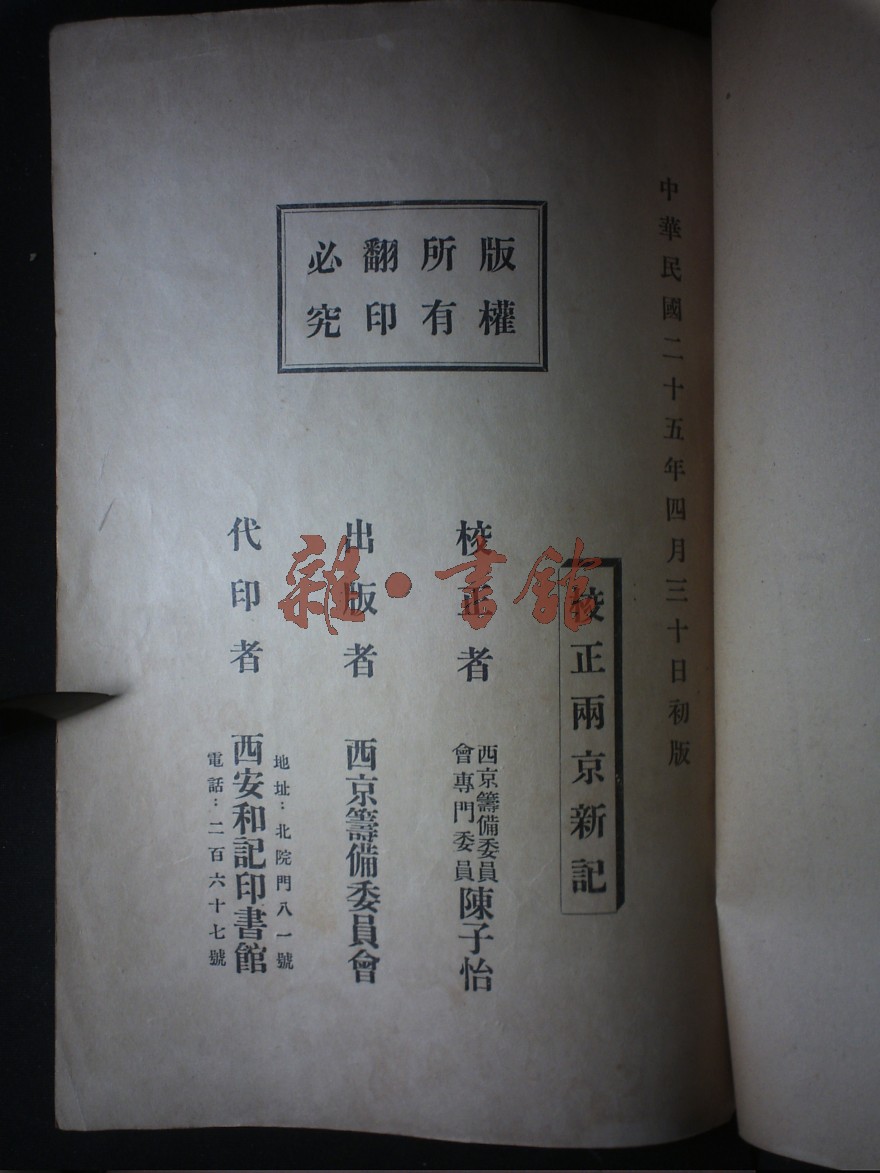 中華民國二十五年四月三十日初版
校正兩京新記
版權
所有
翻印
必究
校正者
西京籌備委員
會專門委員
陳子怡
出版者
西京籌備委員會
代印者
地址：北院門八一號
西安和記印書館
電話：二百六十七號
雜·書館